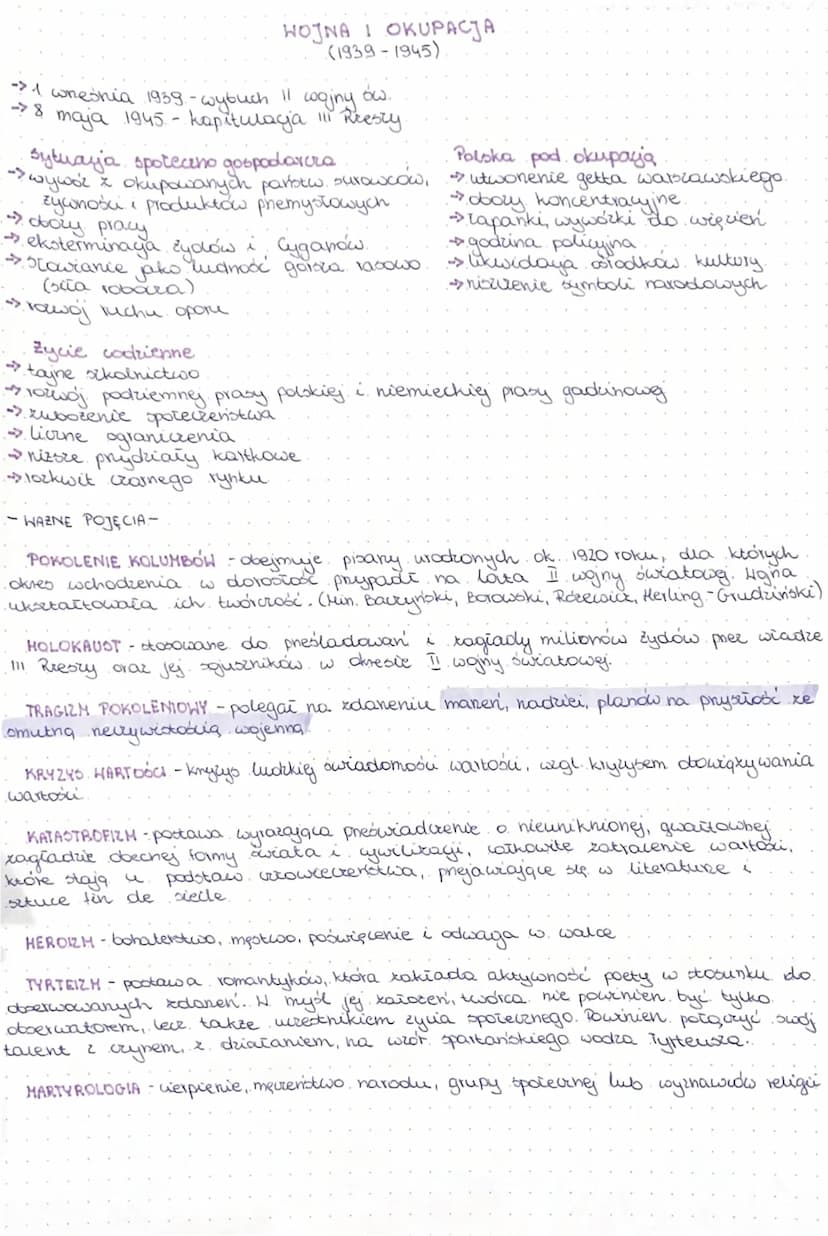 WOJNA I OKUPACJA
(1939 - 1945)
-> 1 września 1939 - wybuch II wojny św.
-> 8 maja 1945 - kapitulacja III Rzeszy
Sytuacja społeczno gospodarcza
-> wywóz z okupowanych państw surowców,
żywności i produktów przemysłowych
-> obozy pracy
-> eksterminacja żydów i Cyganów
-> Słowianie jako ludność gorsza rasowo
(siła robocza)
-> rozwój ruchu oporu
Polska pod okupacją
-> utworzenie getta warszawskiego
-> obozy koncentracyjne
-> łapanki, wywózki do więzień
-> godzina policyjna
-> likwidacja ośrodków kultury
-> niszczenie symboli narodowych
Życie codzienne
-> tajne szkolnictwo
-> rozwój podziemnej prasy polskiej i niemieckiej prasy gadzinowej
-> zubożenie społeczeństwa
-> liczne ograniczenia
-> niższe przydziały kartkowe
-> rozkwit czarnego rynku
- WAŻNE POJĘCIA -
POKOLENIE KOLUMBÓW - obejmuje pisarzy urodzonych ok. 1920 roku, dla których
okres wchodzenia w dorosłość przypadł na lata II wojny światowej. Wojna
ukształtowała ich twórczość. (Min. Baczyński, Borowski, Różewicz, Herling-Grudziński)
HOLOKAUST - stosowane do prześladowań i zagłady milionów żydów przez władze
III Rzeszy oraz jej sojuszników w okresie II wojny światowej.
TRAGIZM POKOLENIOWY - polegał na zdarzeniu marzeń, nadziei, planów na przyszłość ze
smutną rzeczywistością wojenną
KRYZYS WARTOŚCI - kryzys ludzkiej świadomości wartości, wzgl. kryzysem obowiązywania
wartości
KATASTROFIZM - postawa wyrażająca przeświadczenie o nieuniknionej, gwałtownej
zagładzie obecnej formy świata i cywilizacji, całkowite zatracenie wartości,
które stają u podstaw człowieczeństwa, przejawiające się w literaturze i
sztuce fin de siecle
HEROIZM - bohaterstwo, męstwo, poświęcenie i odwaga w walce
TYRTEIZM - postawa romantyków, która zakłada aktywność poety w stosunku do
obserwowanych zdarzeń. W myśl jej założeń, twórca nie powinien być tylko
obserwatorem, lecz także uczestnikiem życia społecznego. Powinien połączyć swój
talent z czynem, z działaniem, na wzór spartańskiego wodza Tyrteusza.
MARTYROLOGIA - cierpienie, męczeństwo narodu, grupy społecznej lub wyznawców religii